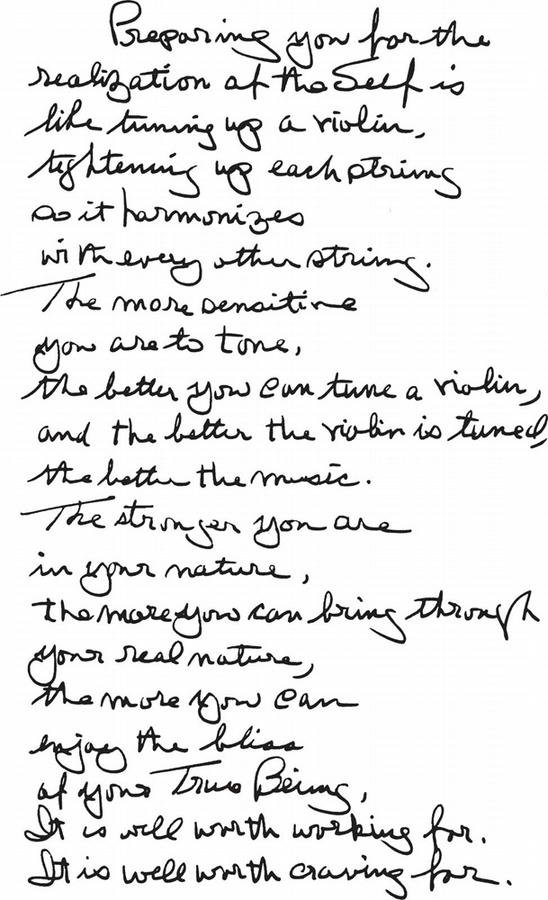 Preparing you for the
realization of the Self is
like tuning up a violin,
tightening up each string
so it harmonizes
with every other string.
The more sensitive
you are to tone,
the better you can tune a violin,
and the better the violin is tuned,
the better the music.
The stronger you are
in your nature,
the more you can bring through
your real nature,
the more you can
enjoy the bliss
of your True Being,
It is well worth working for.
It is well worth craving for.